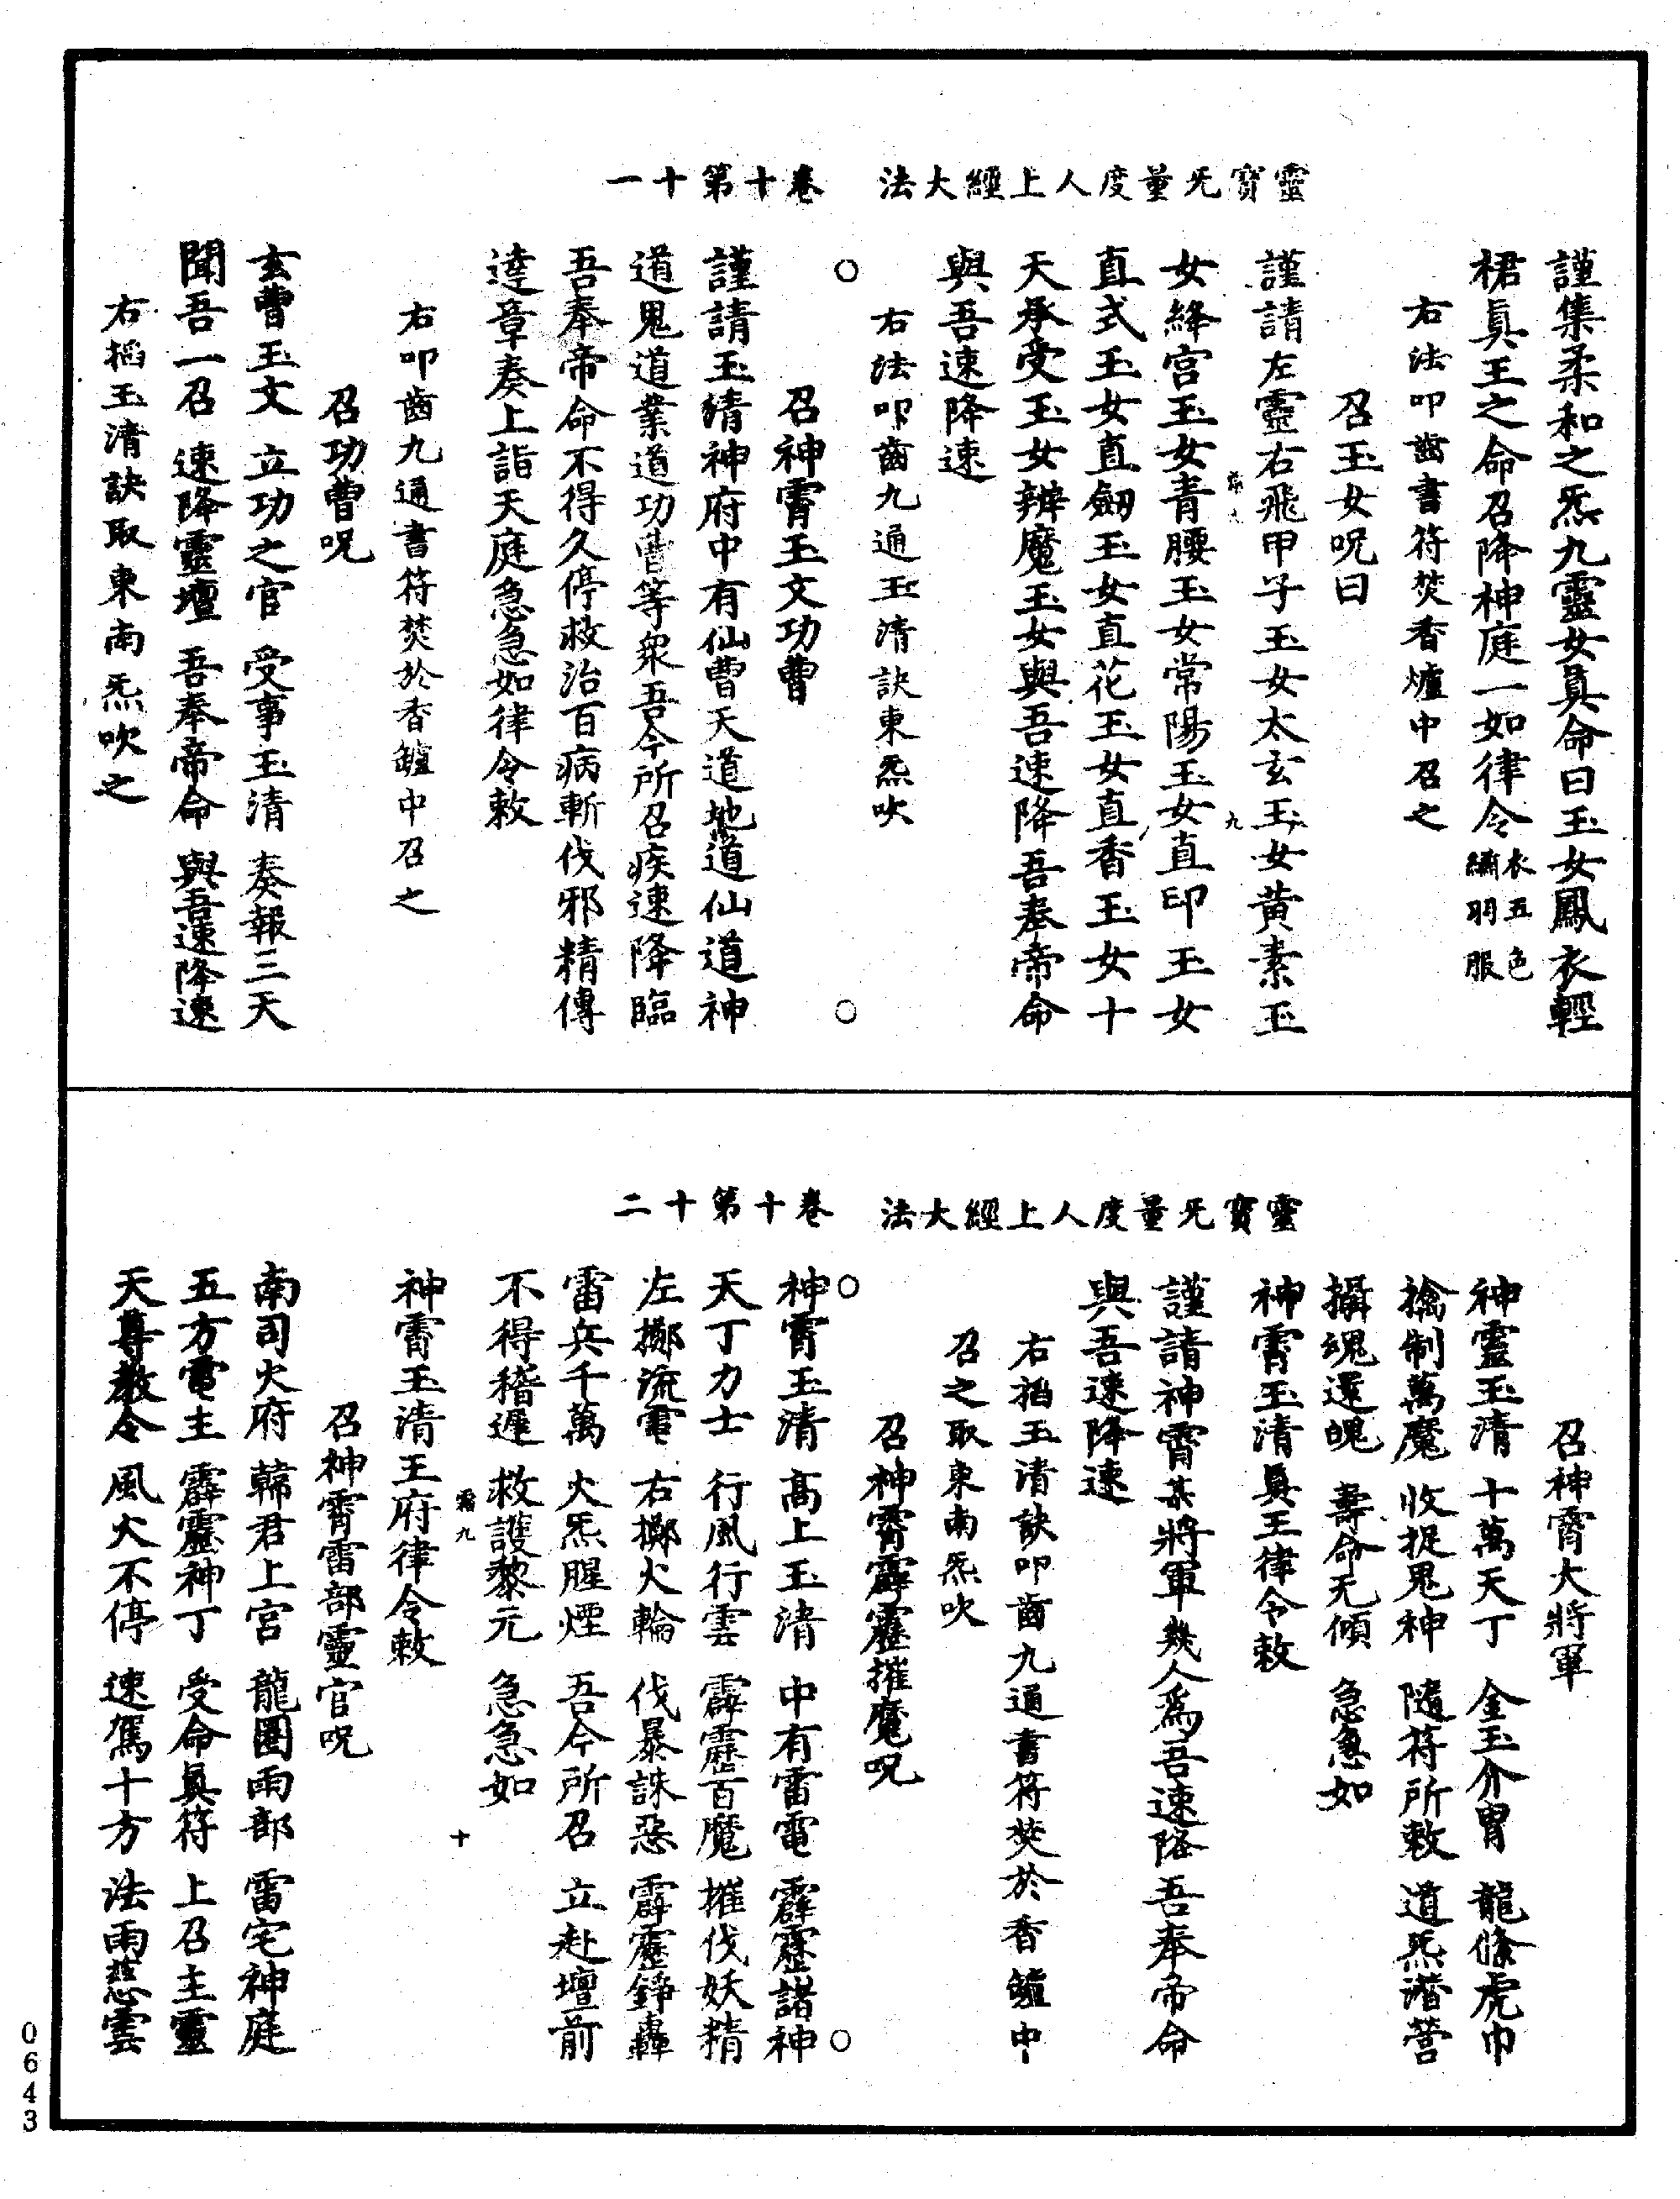 靈寶无量度人上經大法　卷十第十一
謹集柔和之炁九靈女眞命曰玉女鳳衣輕
裙眞王之命召降神庭一如律令衣五色繡羽服
右法叩齒書符焚香爐中召之
召玉女呪曰
謹請左靈右飛甲子玉女太玄玉女黃素玉
女絳宮玉女青腰玉女常陽玉女直印玉女
直式玉女直劒玉女直花玉女直香玉女十
天承受玉女辨魔玉女與吾速降吾奉帝命
與吾速降速
右法叩齒九通玉清訣東炁吹
召神霄玉文功曹
謹請玉清神府中有仙曹天道地道仙道神
道鬼道業道功曹等衆吾今所召疾速降臨
吾奉帝命不得久停救治百病斬伐邪精傳
達章奏上詣天庭急急如律令敕
右叩齒九通書符焚於香鑪中召之
召功曹呪
玄曹玉文　立功之官　受事玉清　奏報三天
聞吾一召　速降靈壇　吾奉帝命　與吾速降速
右掐玉清訣取東南炁吹之
靈寶无量度人上經大法　卷十第十二
召神霄大將軍
神靈玉清　十萬天丁　金玉介冑　龍絛虎巾
擒制萬魔　收捉鬼神　隨符所敕　道炁潛營
攝魂還魄　壽命无傾　急急如
神霄玉清眞王律令敕
謹請神霄某將軍幾人爲吾速降吾奉帝命
與吾速降速
右掐玉清訣叩齒九通書符焚於香鑪中
召之取東南炁吹
召神霄霹靂摧魔呪
神霄玉清　高上玉清　中有雷電　霹靂諸神
天丁力士　行風行雲　霹靂百魔　摧伐妖精
左擲流電　右擲火輪　伐暴誅惡　霹靂錚轟
雷兵千萬　火炁腥煙　吾今所召　立赴壇前
不得稽遲　救護黎元　急急如
神霄玉清王府律令敕
召神霄雷部靈官呪
南司火府　韓君上宮　龍圖雨部　雷宅神庭
五方電主　霹靈神丁　受命眞符　上召主靈
天尊教令　風火不停　速駕十方　法雨慈雲
0643